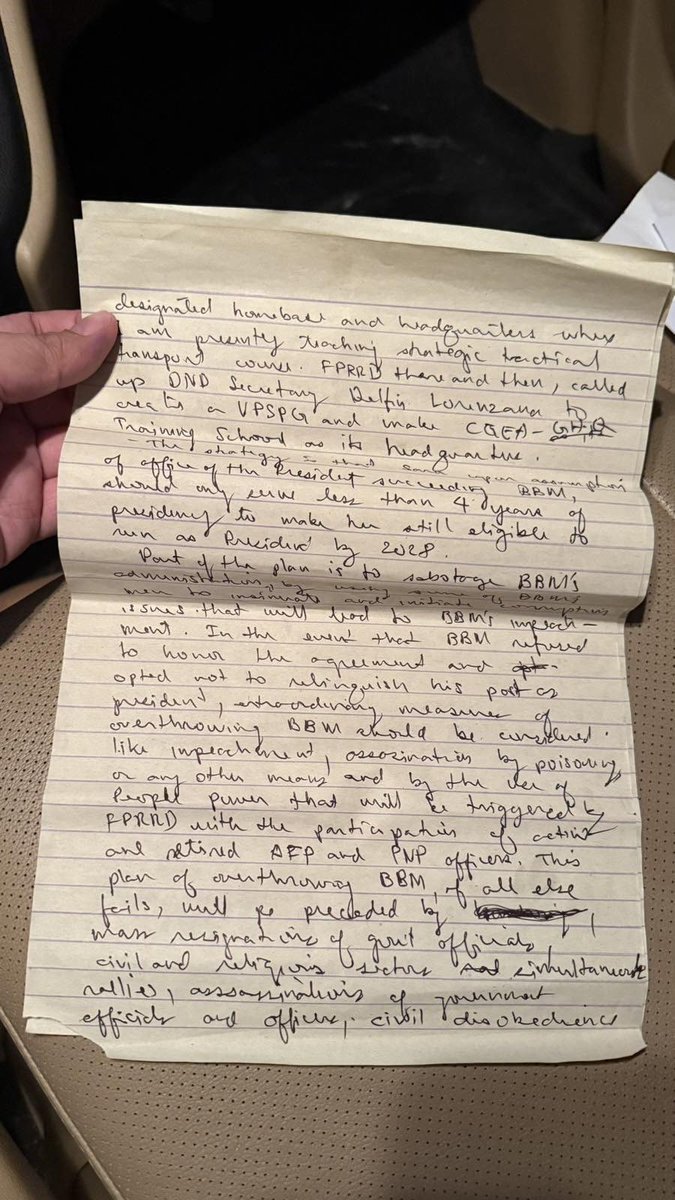 designated homebase and headquarters where
I am presently teaching strategic tactical
transport course. FPRRD there and then, called
up DND Secretary Delfin Lorenzana to
create a VPSPG and make CGEA-
Training School as its headquarters.
- The strategy is that upon assumption
of office of the President succeeding BBM,
should only serve less than 4 years of
presidency to make her still eligible to
run as President by 2028.
Part of the plan is to sabotage BBM's
administration, by using some of BBM's
men to insinuate and initiate corruption
issues that will lead to BBM's impeach-
ment. In the event that BBM refused
to honor the agreement and
opted not to relinquish his post as
president, extraordinary measures of
overthrowing BBM should be considered.
like impeachment, assasination by poisoning
or any other means and by the use of
People power that will be triggered by
FPRRD with the participation of active
and retired AFP and PNP officers. This
plan of overthrowing BBM, if all else
fails, will be preceded by
mass resignations of gov't officials,
civil and religious sectors simultaneous
rallies, assassinations of government
officials and officers, civil disobedience